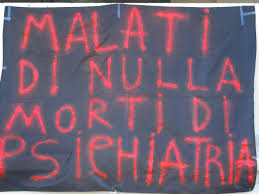 MALATI
DI NULLA
MORTI DI
PSICHIATRIA